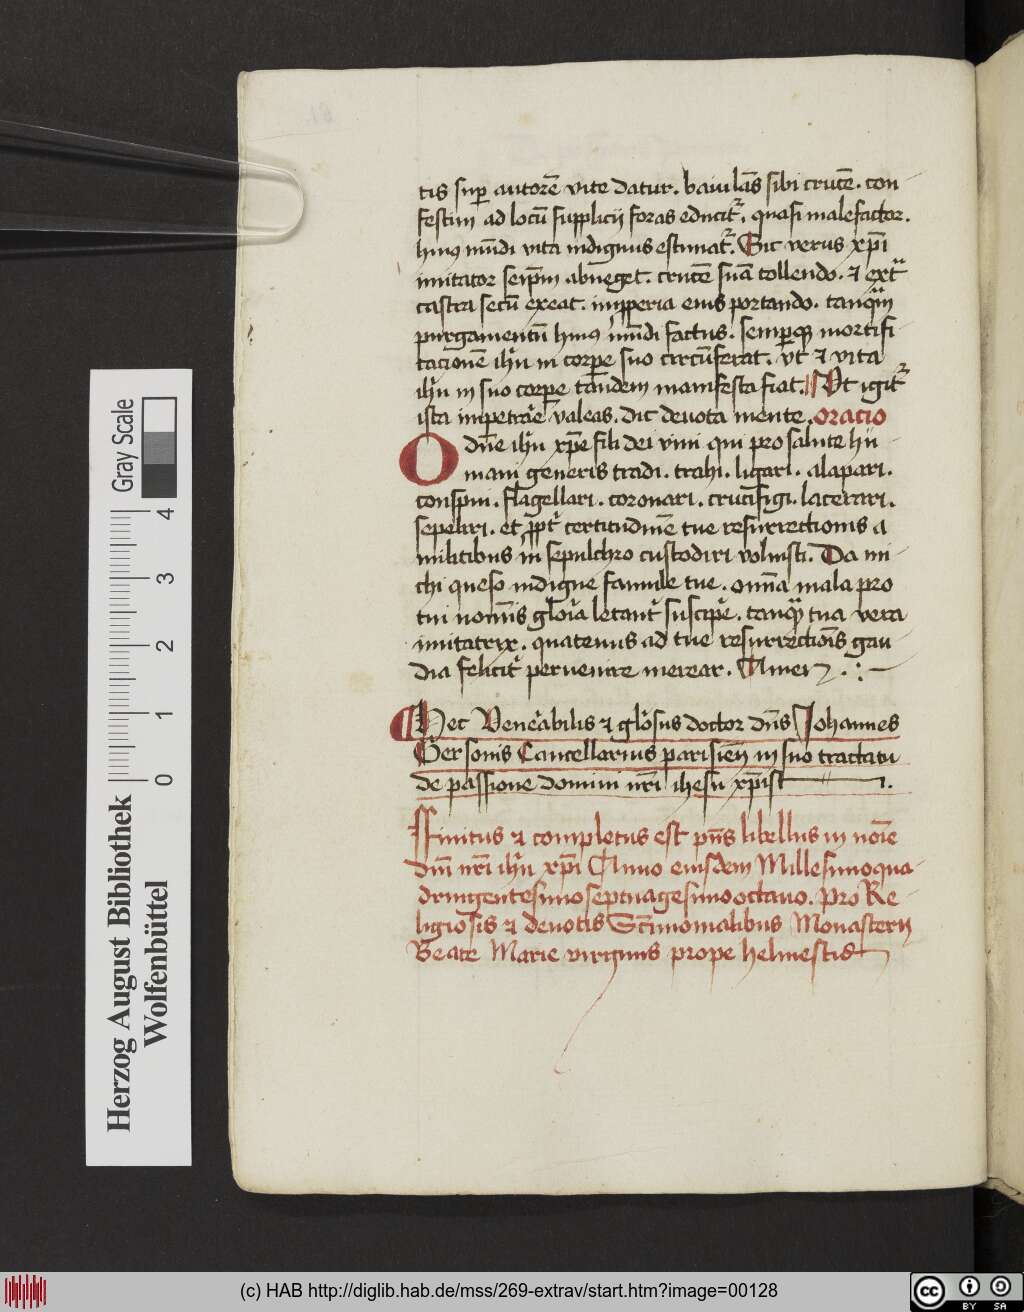 tis sup̲ autorē vite datur. baiulās sibi crucē. con-
festim ad locū supplicij foras educit᷑. quasi malefactor.
huiꝰ mūdi vita indignus estimat᷑. Sic verus xp̄i
imitator seip̄m abneget. crucē suā tollendo. ⁊ ext᷑
castra secū exeat. impperia eius portando. tanqͣm
purgamentū huiꝰ mūdi factus. semperqꝫ mortifi-
tacionē ih̄u in corpe suo circūferat. vt ⁊ vita
ih̄u in suo corpe tandem manifesta fiat. Vt igit᷑
ista impetrare valeas. dic deuota mente. Oracio
O dn̄e ih̄u xp̄e fili dei viui qui pro salute hu-
mani generis tradi. trahi. ligari. alapari.
conspui. flagellari. coronari. crucifigi. lacerari.
sepeliri. et ꝓpt᷑ certitudinē tue resurrectionis a
militibus in sepulchro custodiri voluisti. Da mi-
chi queso indigne famule tue. omīa mala pro
tui nomīs gloīa letant᷑ suscipe. tanqͣ tua vera
imitatrix. quatenus ad tue resurrectiōis gau-
dia felicit᷑ peruenire merear. Amen
Hec Venerabilis ⁊ glōsus doctor dn̄s Johannes
Gersonis Cancellarius parisieñ in suo tractatu
de passione domini nr̄i ihesu xp̄isti.
Finitus ⁊ completus est pn̄s libellus in noīe
dn̄i nr̄i ih̄u xp̄i Anno eiusdem Millesimoqua-
dringentesimoseptuagesimooctauo. Pro Re-
ligiosis ⁊ deuotis Sc̄imonialibus Monasterij
Beate Marie virginis prope helmested
Gray Scale
4 3 2 1 0
Herzog August Bibliothek
Wolfenbüttel
(c) HAB http://diglib.hab.de/mss/269-extrav/start.htm?image=00128
cc BY SA